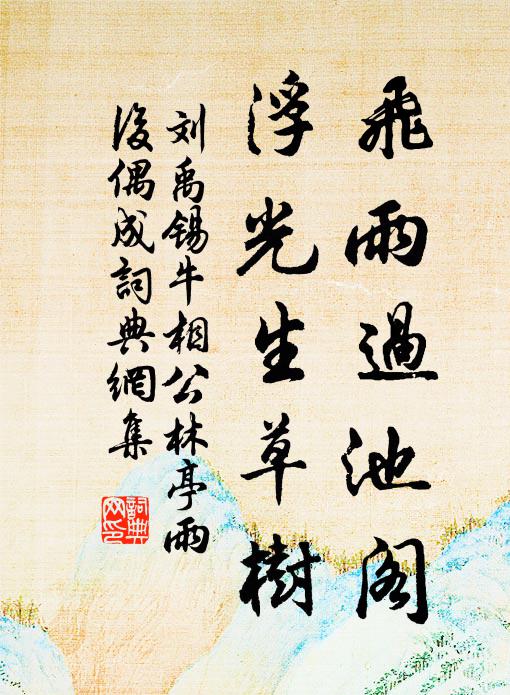 飛雨過池閣
浮光生草樹
刘禹锡牛相公林亭雨
後偶成詞典網集
詞典
网印